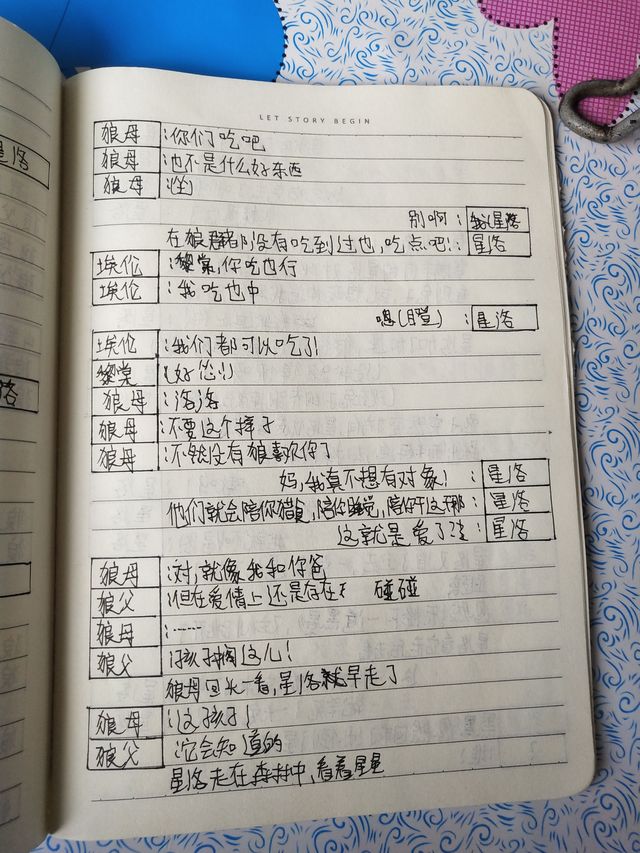 星洛
洛
LET STORY BEGIN
狼母：你们吃吧
狼母：也不是什么好东西
狼母：
别啊：星洛
在狼群都没有吃到过也,吃点吧!：星洛
埃伦：黎棠,你吃也行
埃伦：我吃也中
嗯(瞪)：星洛
埃伦：我们都可以吃了!
黎棠：好怂!
狼母：洛洛
狼母：不要这个样子
狼母：不然没有狼喜欢你了
妈,我真不想有对象!：星洛
他们就会陪你猎食,陪你睡觉,陪你干这干那：星洛
这就是爱了?：星洛
狼母：对,就像我和你爸
狼父：但在爱情上还是存在 碰碰
狼母：……
狼父：孩子搁这儿!
狼母回头一看,星洛就早走了
狼母：这孩子!
狼父：它会知道的
星洛走在森林中,看着星星